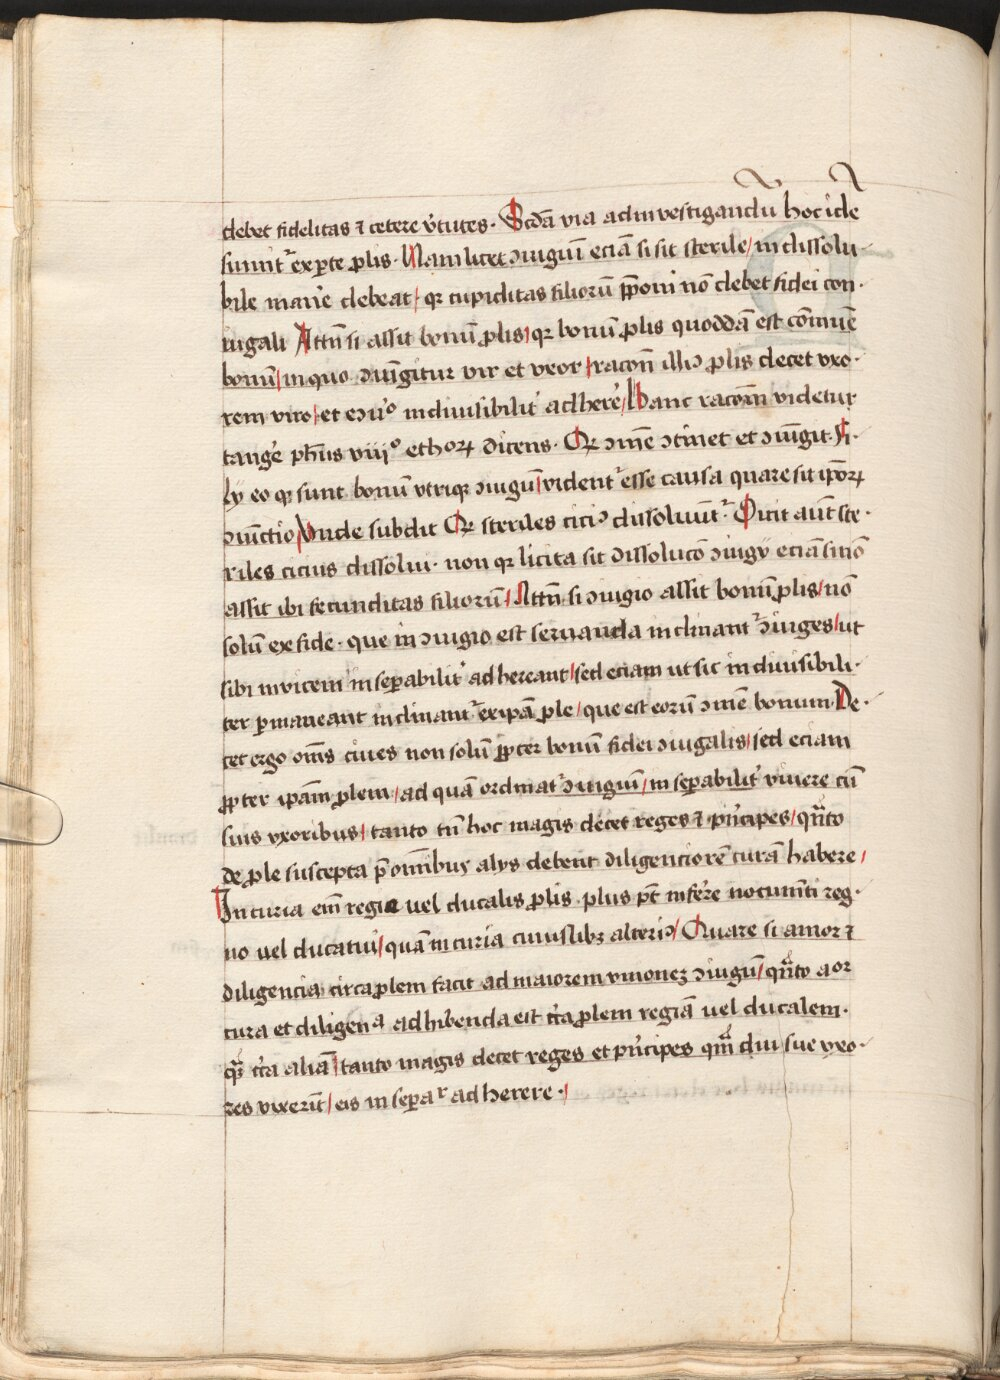 debet fidelitas ⁊ cetere v̓tutes. Scđa via ad investigandū hoc ide
sumit᷑ ex ꝑte ꝓlis. Nam licet ꝯiugiū eciā si sit sterile / indissolu-
bile mane̓ debeat / qꝛ cupiditas filiorū p̄poni nō debet fidei con-
iugali Attn̄ si assit bonū ꝓlis / qꝛ bonū ꝓlis quoddā est cōmune
bonū / in quo ꝯiūgitur vir et vxor / racōn illiꝯ ꝓlis decet vxo-
rem viro / et eꝯuͦ indiuisibilit̓ adhere̓ / Hanc racōem videtur
tange̓ ph̄us viijͦ ethoꝝ dicens. Qꝛ ꝯmē ꝯtinet et ꝯiūgit. Fi-
lij eo qꝛ sunt bonū vtriqꝫ ꝯiugū / vident᷑ esse causa quare sit ip̄oꝝ
ꝯiūctio / Vnde subdit Qꝛ steriles ciciꝯ dissoluūt᷑. Dicit aut̄ ste-
riles cicius dissolui. non qꝛ licita sit dissolucō ꝯiugij eciā si nō
assit ibi fecunditas filiorū / Attn̄ si ꝯiugio assit bonū ꝓlis / nō
solū ex fide. que in ꝯiugio est seruanda inclinant᷑ ꝯiuges / ut
sibi invicem inseꝑabilit̓ adhereant / sed eciam ut sic indiuisibili-
ter ꝑmaneant inclinant᷑ ex ip̄a ꝓle / que est eorū ꝯmē bonum. De-
cet ergo om̄s ciues non solū ꝓpter bonū fidei ꝯiugalis / sed eciam
ꝓpter ip̄am ꝓlem / ad quā ordinat᷑ ꝯiugiū / inseꝑabilit̓ viuere cū
suis vxoribus / tanto tn̄ hoc magis decet reges ⁊ pͥncipes / qn̄to
de ꝓle suscepta p̄ omībus alijs debent diligenciorē curā habere /
In curia em̄ regia vel ducalis ꝓlis plus pt̄ infe̓re nocumti reg-
no vel ducatui / quā in curia cuiuslibꝫ alteriꝯ / Quare si amor ⁊
diligencia circa ꝓlem facit ad maiorem vnionez ꝯiugū / qn̄to aor
cura et diligenᵃ adhibenda est cͥca ꝓlem regiā vel ducalem.
qᷓꝫ cͥca aliā / tanto magis decet reges et pͥncipes qm̄ diu sue vxo-
res vixerīt / eis inseꝑaʳ adherere. /